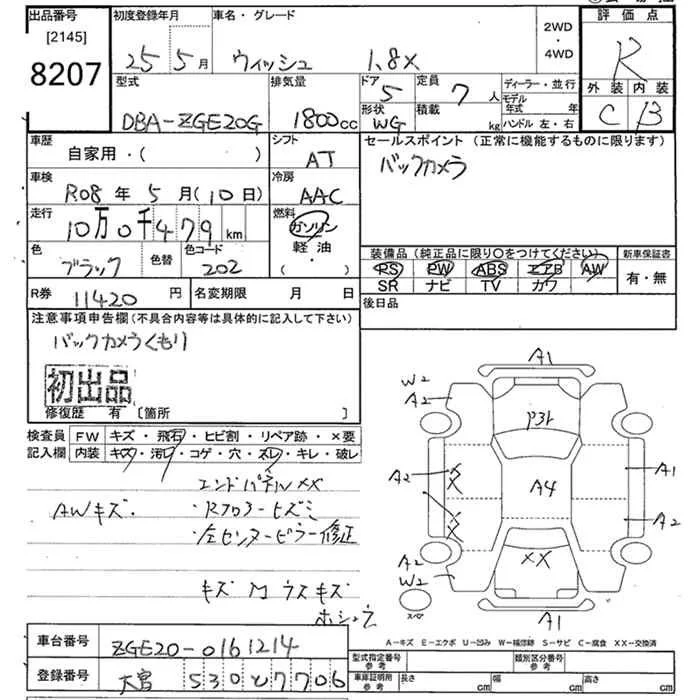 出品番号
[2145]
8207
初度登録年月
25年5月
車名・グレード
ウィッシュ 1.8X
2WD
・
4WD
評価点
R
外装 内装
C B
型式
DBA-ZGE20G
排気量
1800cc
ドア
5
形状
WG
定員
7人
積載
kg
ディーラー・並行
モデル
年式 年
ハンドル 左・右
車歴
自家用・( )
シフト
AT
セールスポイント (正常に機能するものに限ります)
バックカメラ
車検
R08年5月(10日)
冷房
AAC
走行
10万0千479km
燃料
ガソリン
軽油・
( )
色
ブラック
色替
色コード
202
装備品 (純正品に限り〇をつけてください)
PS PW ABS エアB AW
SR ナビ TV カワ
新車保証書
有・無
R券 11420円
名変期限 月 日
後日品
注意事項申告欄(不具合内容等は具体的に記入して下さい)
バックカメラくもり
初出品
修復歴 有 [箇所 ]
検査員
記入欄
FW キズ・飛石・ヒビ割・リペア跡・×要
内装 キズ・汚レ・コゲ・穴・スレ・キレ・破レ
エンドパネルXX
AWキズ・
・Rフロアーヒズミ
・左センターピラー修正
キズ M ウスキズ
ホシュウ
A1
W2
A2
P31
A2
XX
A4
A1
XX
A2
A2
W2
XX
スペア
A1
A-キズ E-エクボ U-凹み W-補修跡 S-サビ C-腐食 XX-交換済
車台番号 ZGE20-0161214
登録番号 大宮 530 そ 7706
型式指定番号
参考
類別区分番号
参考
車庫証明用
参考
長さ cm 幅 cm 高さ cm